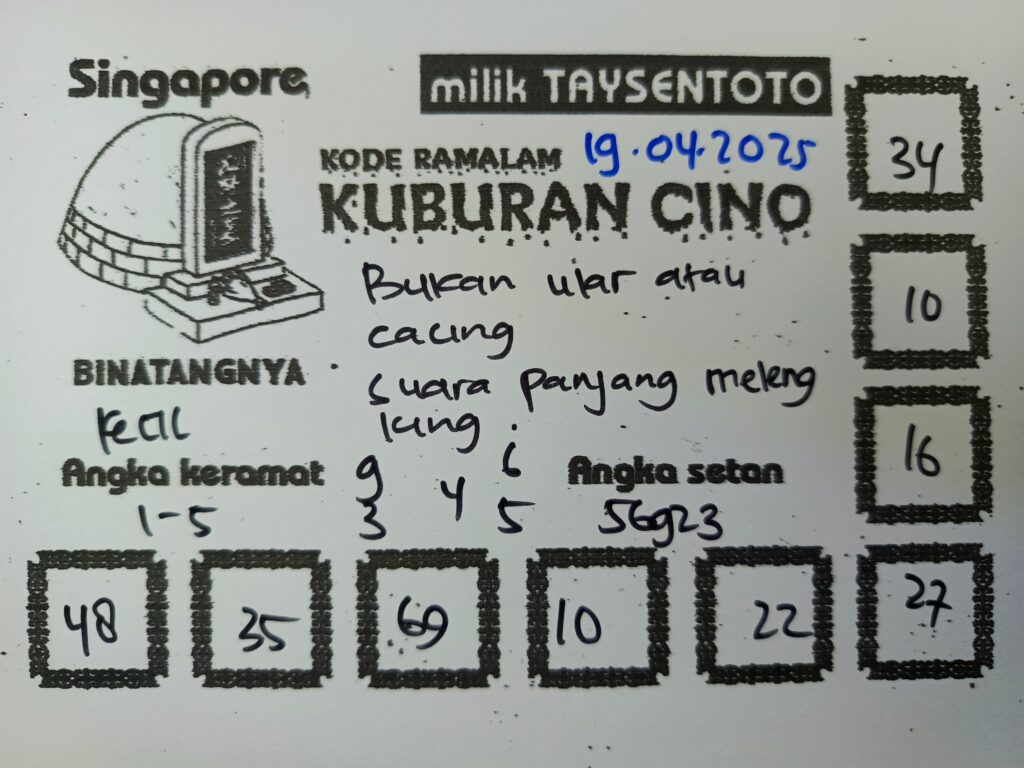 Singapore
milik TAYSENTOTO
KODE RAMALAM 19.04.2025
KUBURAN CINO
34
Bukan ular atau
cacing
10
BINATANGNYA
suara panjang meleng
kecil
king.
16
Angka keramat
9 6
4
3 5
Angka setan
1-5
56923
48 35 69 10 22 27